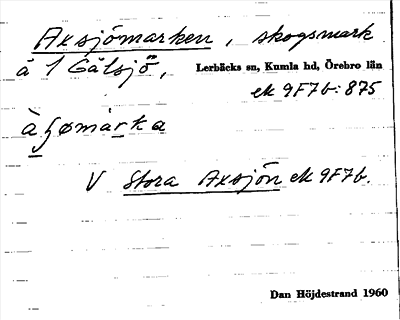 Axsjömarken, skogsmark
å 1 Gålsjö, Lerbäcks sn, Kumla hd, Örebro län
ek 9F7b:875
V Stora Axsjön ek 9F7b.
Dan Höjdestrand 1960